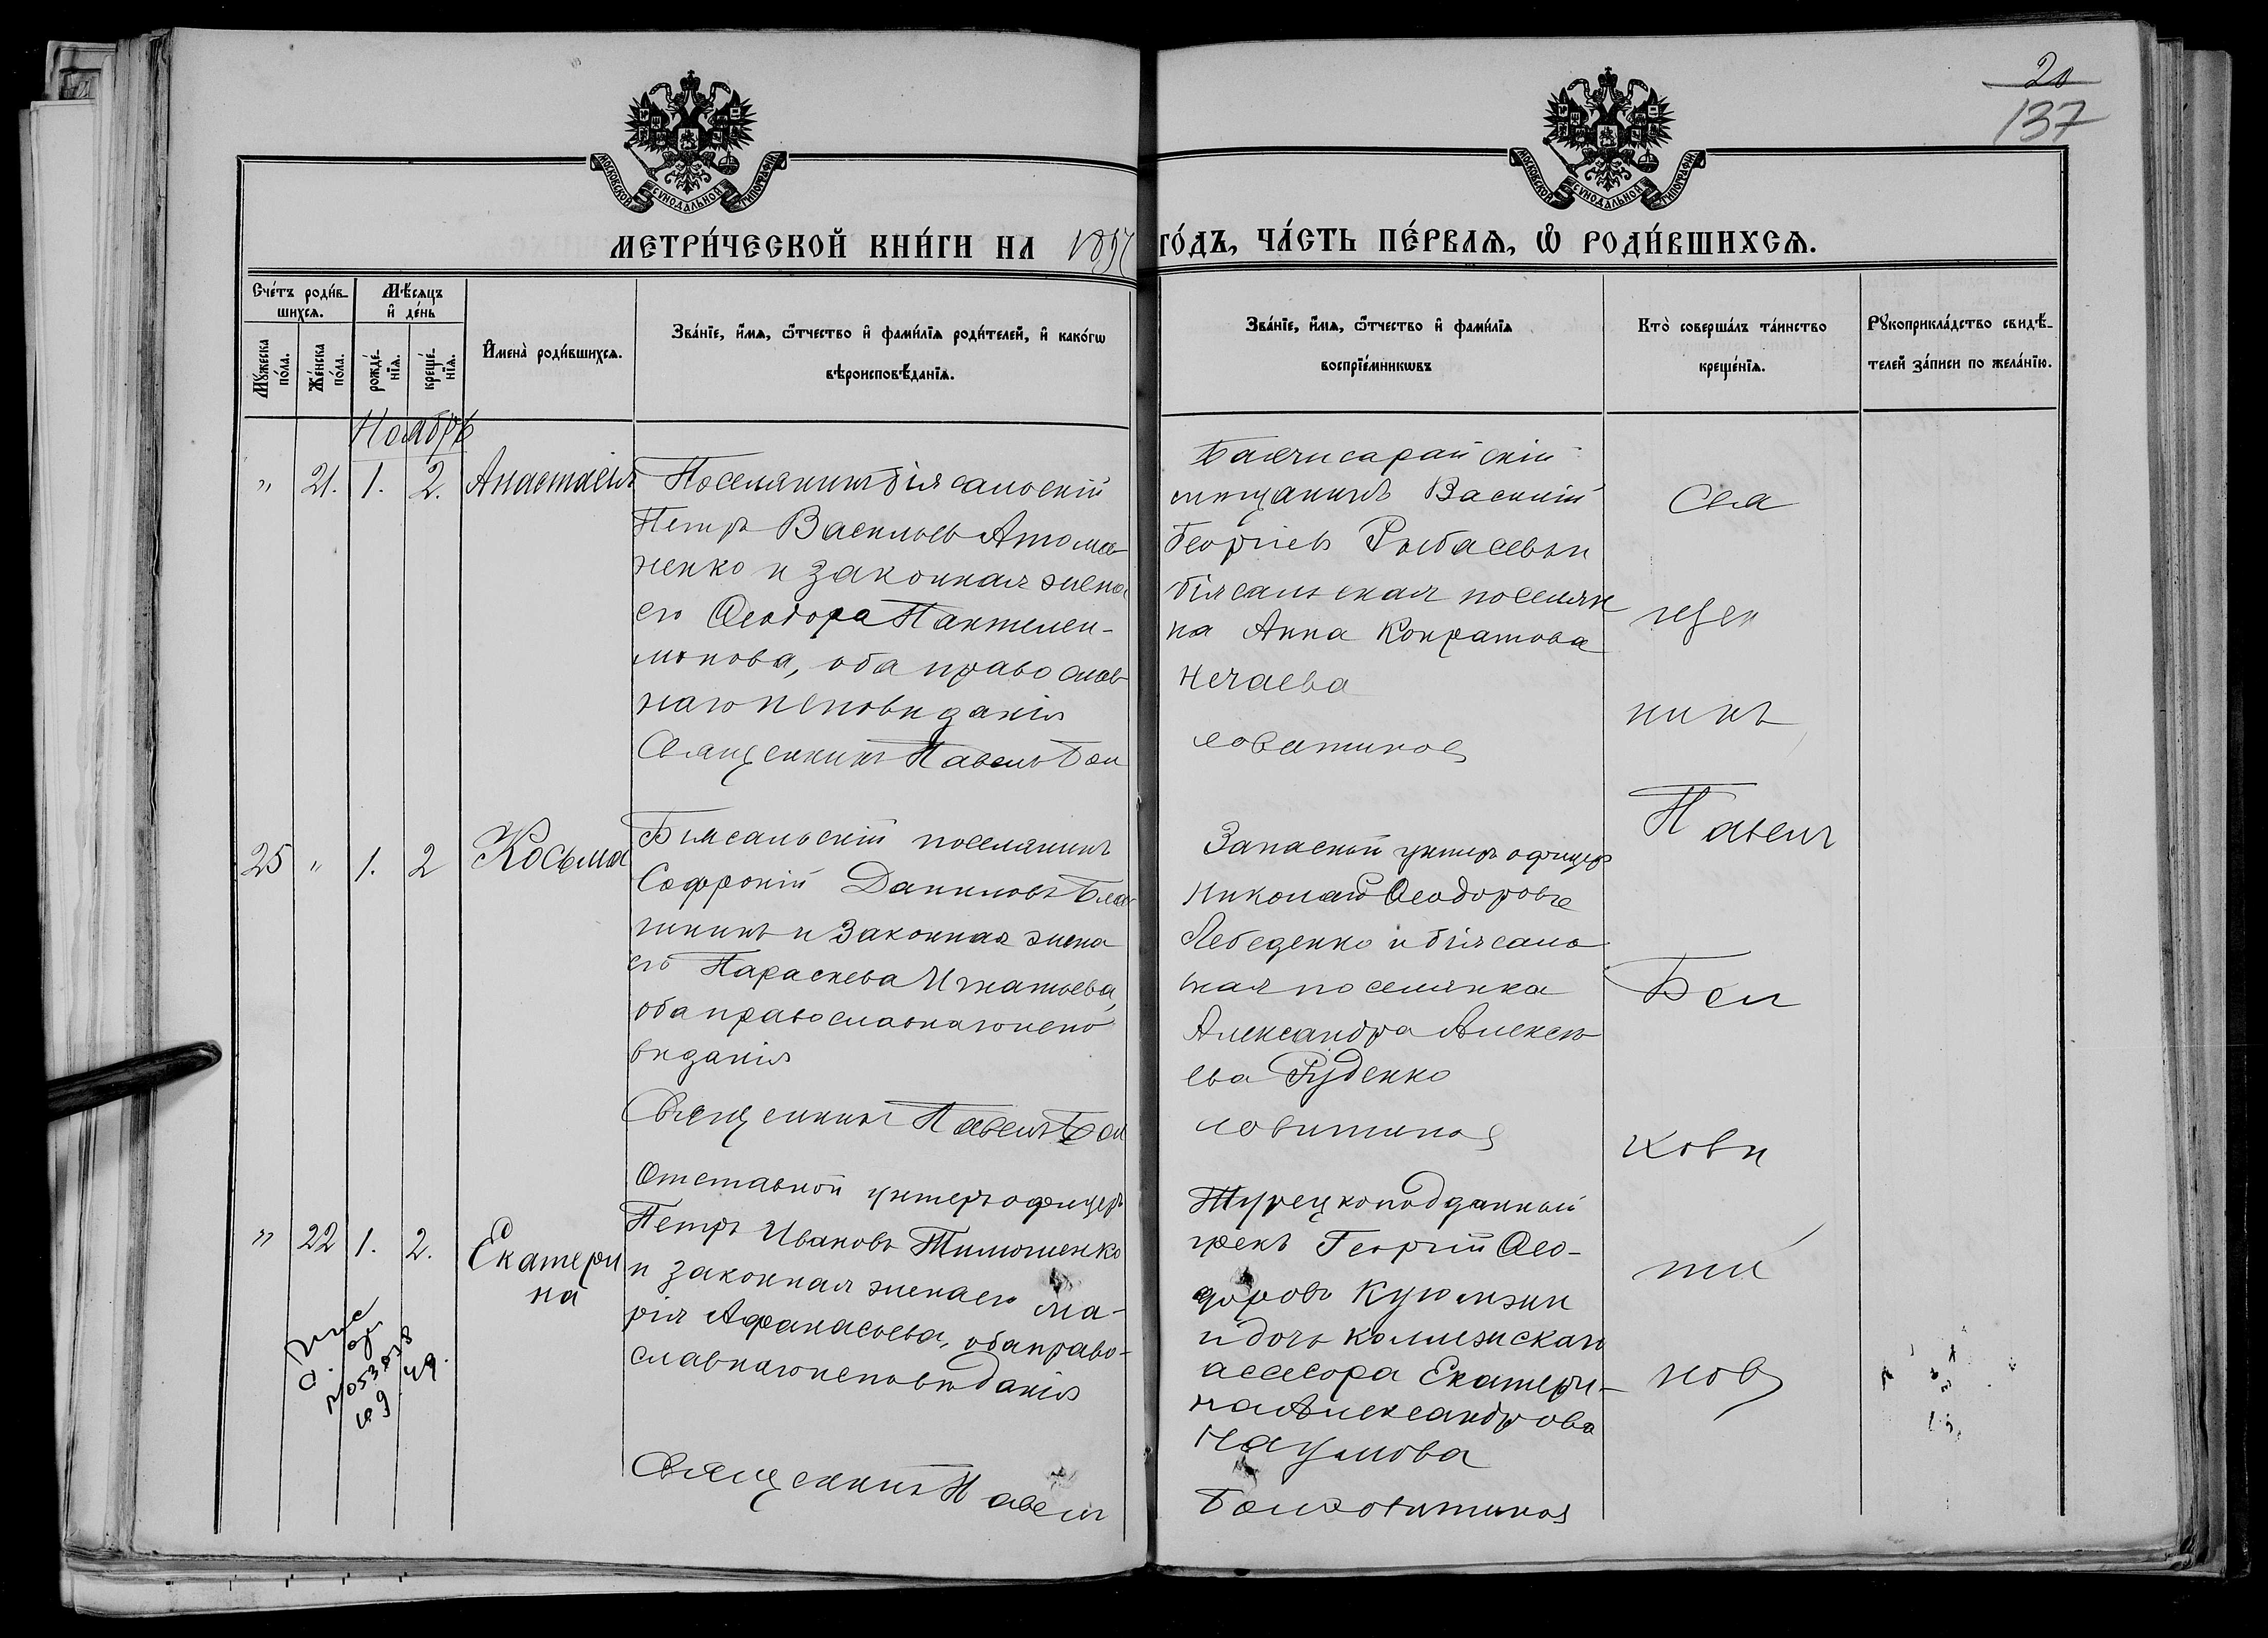 20
137
МОСКОВСКОЙ СѴНОДАЛЬНОЙ ТИПОГРАФІИ
МОСКОВСКОЙ СѴНОДАЛЬНОЙ ТИПОГРАФІИ
МЕТРИ́ЧЕСКОЙ КНИ́ГИ НА 189
ГО́ДЪ, ЧА́СТЬ ПЕ́РВАѦ, Ѽ РОДИ́ВШИХСѦ.
Сче́тъ роди́в-
шихсѧ.
Мꙋ́жеска по́ла.
Же́нска по́ла.
Мѣ́сѧцъ
и҆ де́нь
рожде́-нїѧ.
креще́-нїѧ.
И҆мена̀ роди́вшихсѧ.
Зва́нїе, и҆́мѧ, ѻ҆́тчество и҆ фами́лїѧ роди́телей, и҆ како́гѡ
вѣроисповѣ́данїѧ.
Зва́нїе, и҆́мѧ, ѻ҆́тчество и҆ фами́лїѧ
воспрїе́мникѡвъ
Кто̀ соверша́лъ та́инство
креще́нїѧ.
Рꙋкоприкла́дство свидѣ́-
телей за́писи по жела́нїю.
Ноябрь
" 21. 1. 2. Анастасія
Поселянинъ біясальскій
Петръ Васильевъ Атома-
ненко и законная жена
его Ѳеодора Пантелеи-
монова, оба православ
наго исповѣданія
Священникъ Павелъ Бол
Бахчисарайскій
мѣщанинъ Василій
Георгіевъ Рыбасевъ и
біясальская поселян
ка Анна Кондратова
Нечаева
ховитиновъ
25 " 1. 2 Косьма
Біясальскій поселянинъ
Софроній Даниловъ Бла
жинъ и законная жена
его Параскева Игнатьева,
оба православнаго испо
вѣданія
Священникъ Павелъ Бол
Запасный унтеръ офицеръ
Николай Ѳеодоровъ
Лебеденко и біясаль
ская поселянка
Александра Алексѣ
ева Руденко
ховитиновъ
" 22 1. 2. Екатери
на
Отставной унтеръ офицеръ
Петръ Ивановъ Тимошенко
и законная жена его Ма-
рія Афанасьева, оба право-
славнаго исповѣданія
Священникъ Павелъ
Турецкоподданный
грекъ Георгій Ѳео-
доровъ Куюмжи
и дочь коллежскаго
ассесора Екатери-
на Александрова
Наумова
Болховитиновъ
Свя
щен
никъ
Павелъ
Бол
хови
ти
новъ